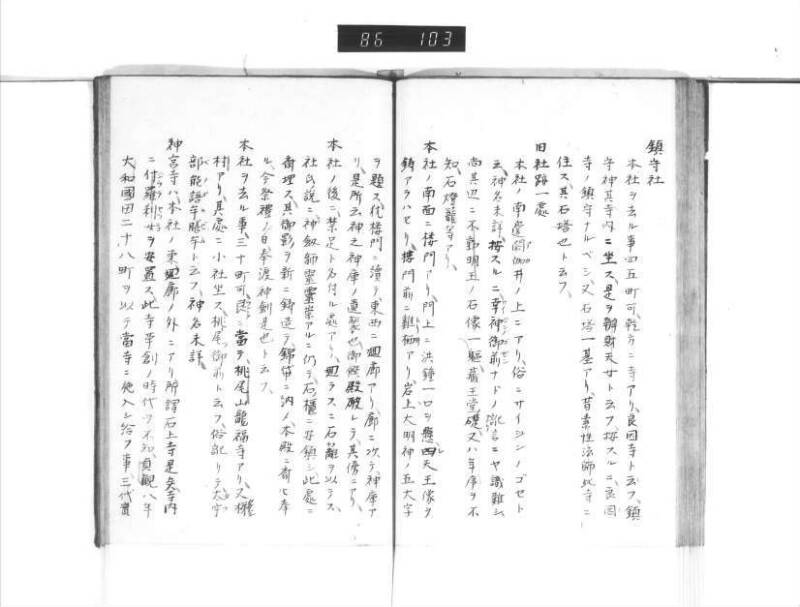 86 103
鎮守社
本社ヲ去ル事四五町可、乾方ニ寺アリ、良因寺ト云フ、鎮
守神其寺内ニ坐ス是ヲ辨財天女ト云フ、按スルニ良因
寺ノ鎮守ナルベシ、又石塔一基アリ、昔素性法師此寺ニ
住ス其石塔也ト云フ、
旧社跡一處
本社ノ南 閼伽井ノ上ニアリ、俗ニサイジンノゴゼト
云、神名未詳、按スルニ幸神御前ナドノ訛言ニヤ識難シ、
尚其辺ニ不動明王ノ石像一軀、蔵王堂礎、又ハ年序ヲ不
知、石燈籠等アリ、
本社ノ南面ニ楼門アリ、門上ニ洪鐘一口ヲ懸、四天王像ヲ
鋳アラハセリ、楼門前ニ鶏栖アリ、岩上大明神ノ五大字
ヲ題ス、楼門ニ續テ東西ニ廻廊アリ、廊ニ次テ神庫ア
リ、是所云神之神庫ノ遺製也、御殿 レテ、其傍ニアリ、
本社ノ後ニ禁足ト名付ル處アリ、廻ラスニ石 ヲ以テス、
社氏説ニ神劔師靈 崇アルニ仍テ、石ノ櫃ニ安鎮シ、此處ニ
斎埋ス其御影ヲ新ニ鋳造テ、錦帒ニ納ノ本殿ニ斎ヒ奉
ル、今祭禮ノ日奉渡神劍是也ト云フ、
本社ヲ去ル事、三十町可、 當テ、桃尾山龍福寺アリ、又
村アリ、其處ニ小社坐ス桃尾御前ト云フ、俗訛リテ大字
部能 ト云フ、神名未詳、
神宮寺ハ本社ノ東廻廊ノ外ニアリ所謂石上寺是矣、寺内
ニ付羅刹女ヲ安置ス此寺草創ノ時代ヲ不知、貞観八年
大和國田二十八町ヲ以テ當寺ニ施入シ給フ事、三代實